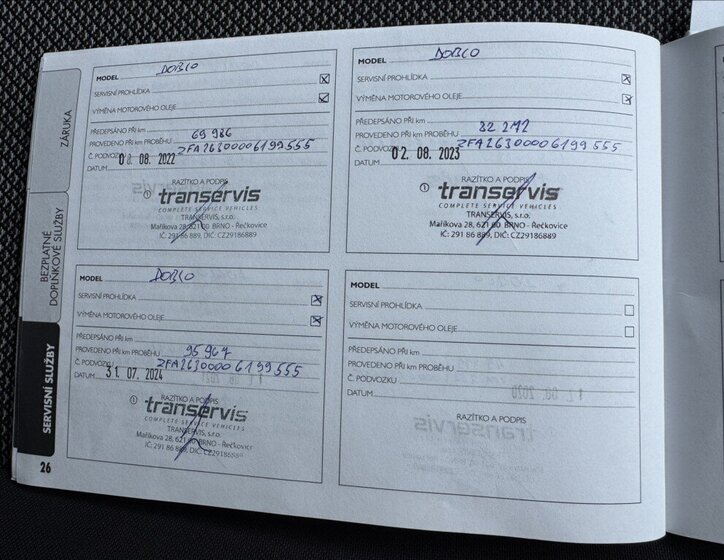 ZÁRUKA
BEZPLATNÉ
DOPLŇKOVÉ SLUŽBY
SERVISNÍ SLUŽBY
26
MODEL DOBLO
SERVISNÍ PROHLÍDKA X
VÝMĚNA MOTOROVÉHO OLEJE X
PŘEDEPSÁNO PŘI km
PROVEDENO PŘI km PROBĚHU 69 986
Č. PODVOZKU ZFA26300006199555
DATUM 08. 2022
RAZÍTKO A PODPIS
transervis
COMPLETE SERVICE VEHICLES
TRANSERVIS, s.r.o.
Maříkova 28, 621 00 BRNO - Řečkovice
IČ: 291 86 889, DIČ: CZ29186889
MODEL DOBLO
SERVISNÍ PROHLÍDKA X
VÝMĚNA MOTOROVÉHO OLEJE X
PŘEDEPSÁNO PŘI km
PROVEDENO PŘI km PROBĚHU 82 272
Č. PODVOZKU ZFA26300006199555
DATUM 02. 08. 2023
RAZÍTKO A PODPIS
① transervis
COMPLETE SERVICE VEHICLES
TRANSERVIS, s.r.o.
Maříkova 28, 621 00 BRNO - Řečkovice
IČ: 291 86 889, DIČ: CZ29186889
MODEL DOBLO
SERVISNÍ PROHLÍDKA X
VÝMĚNA MOTOROVÉHO OLEJE X
PŘEDEPSÁNO PŘI km
PROVEDENO PŘI km PROBĚHU 95 967
Č. PODVOZKU ZFA26300006199555
DATUM 31. 07. 2024
RAZÍTKO A PODPIS
① transervis
COMPLETE SERVICE VEHICLES
TRANSERVIS, s.r.o.
Maříkova 28, 621 00 BRNO - Řečkovice
IČ: 291 86 889, DIČ: CZ29186889
MODEL
SERVISNÍ PROHLÍDKA
VÝMĚNA MOTOROVÉHO OLEJE
PŘEDEPSÁNO PŘI km
PROVEDENO PŘI km PROBĚHU
Č. PODVOZKU
DATUM
RAZÍTKO A PODPIS